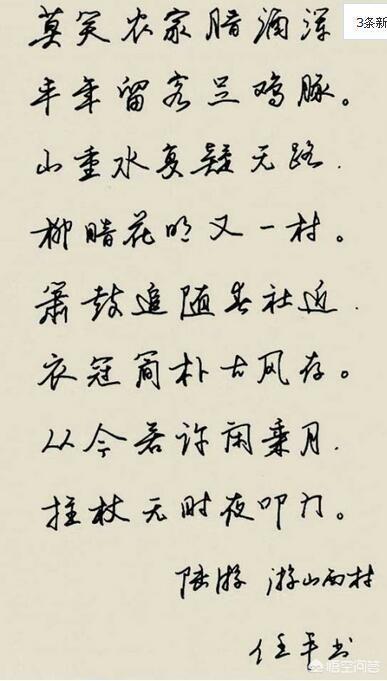 3条新
莫笑农家腊酒浑
丰年留客足鸡豚。
山重水复疑无路.
柳暗花明又一村。
箫鼓追随春社近.
衣冠简朴古风存。
从今若许闲乘月.
拄杖无时夜叩门。
陆游 游山西村
任平书
悟空问答